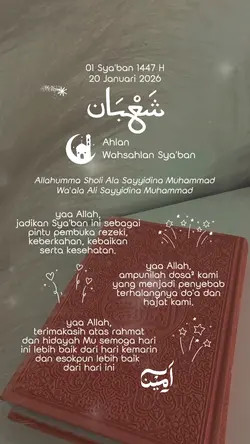 01 Sya'ban 1447 H
20 Januari 2026
شَعْبَان
Ahlan
Wahsahlan Sya'ban
Allahumma Sholi Ala Sayyidina Muhammad
Wa'ala Ali Sayyidina Muhammad
yaa Allah,
jadikan Sya'ban ini sebagai
pintu pembuka rezeki,
keberkahan, kebaikan
serta kesehatan.
yaa Allah,
ampunilah dosa² kami
yang menjadi penyebab
terhalangnya do'a dan
hajat kami.
yaa Allah,
terimakasih atas rahmat
dan hidayah Mu semoga hari
ini lebih baik dari hari kemarin
dan esokpun lebih baik
dari hari ini
آمين